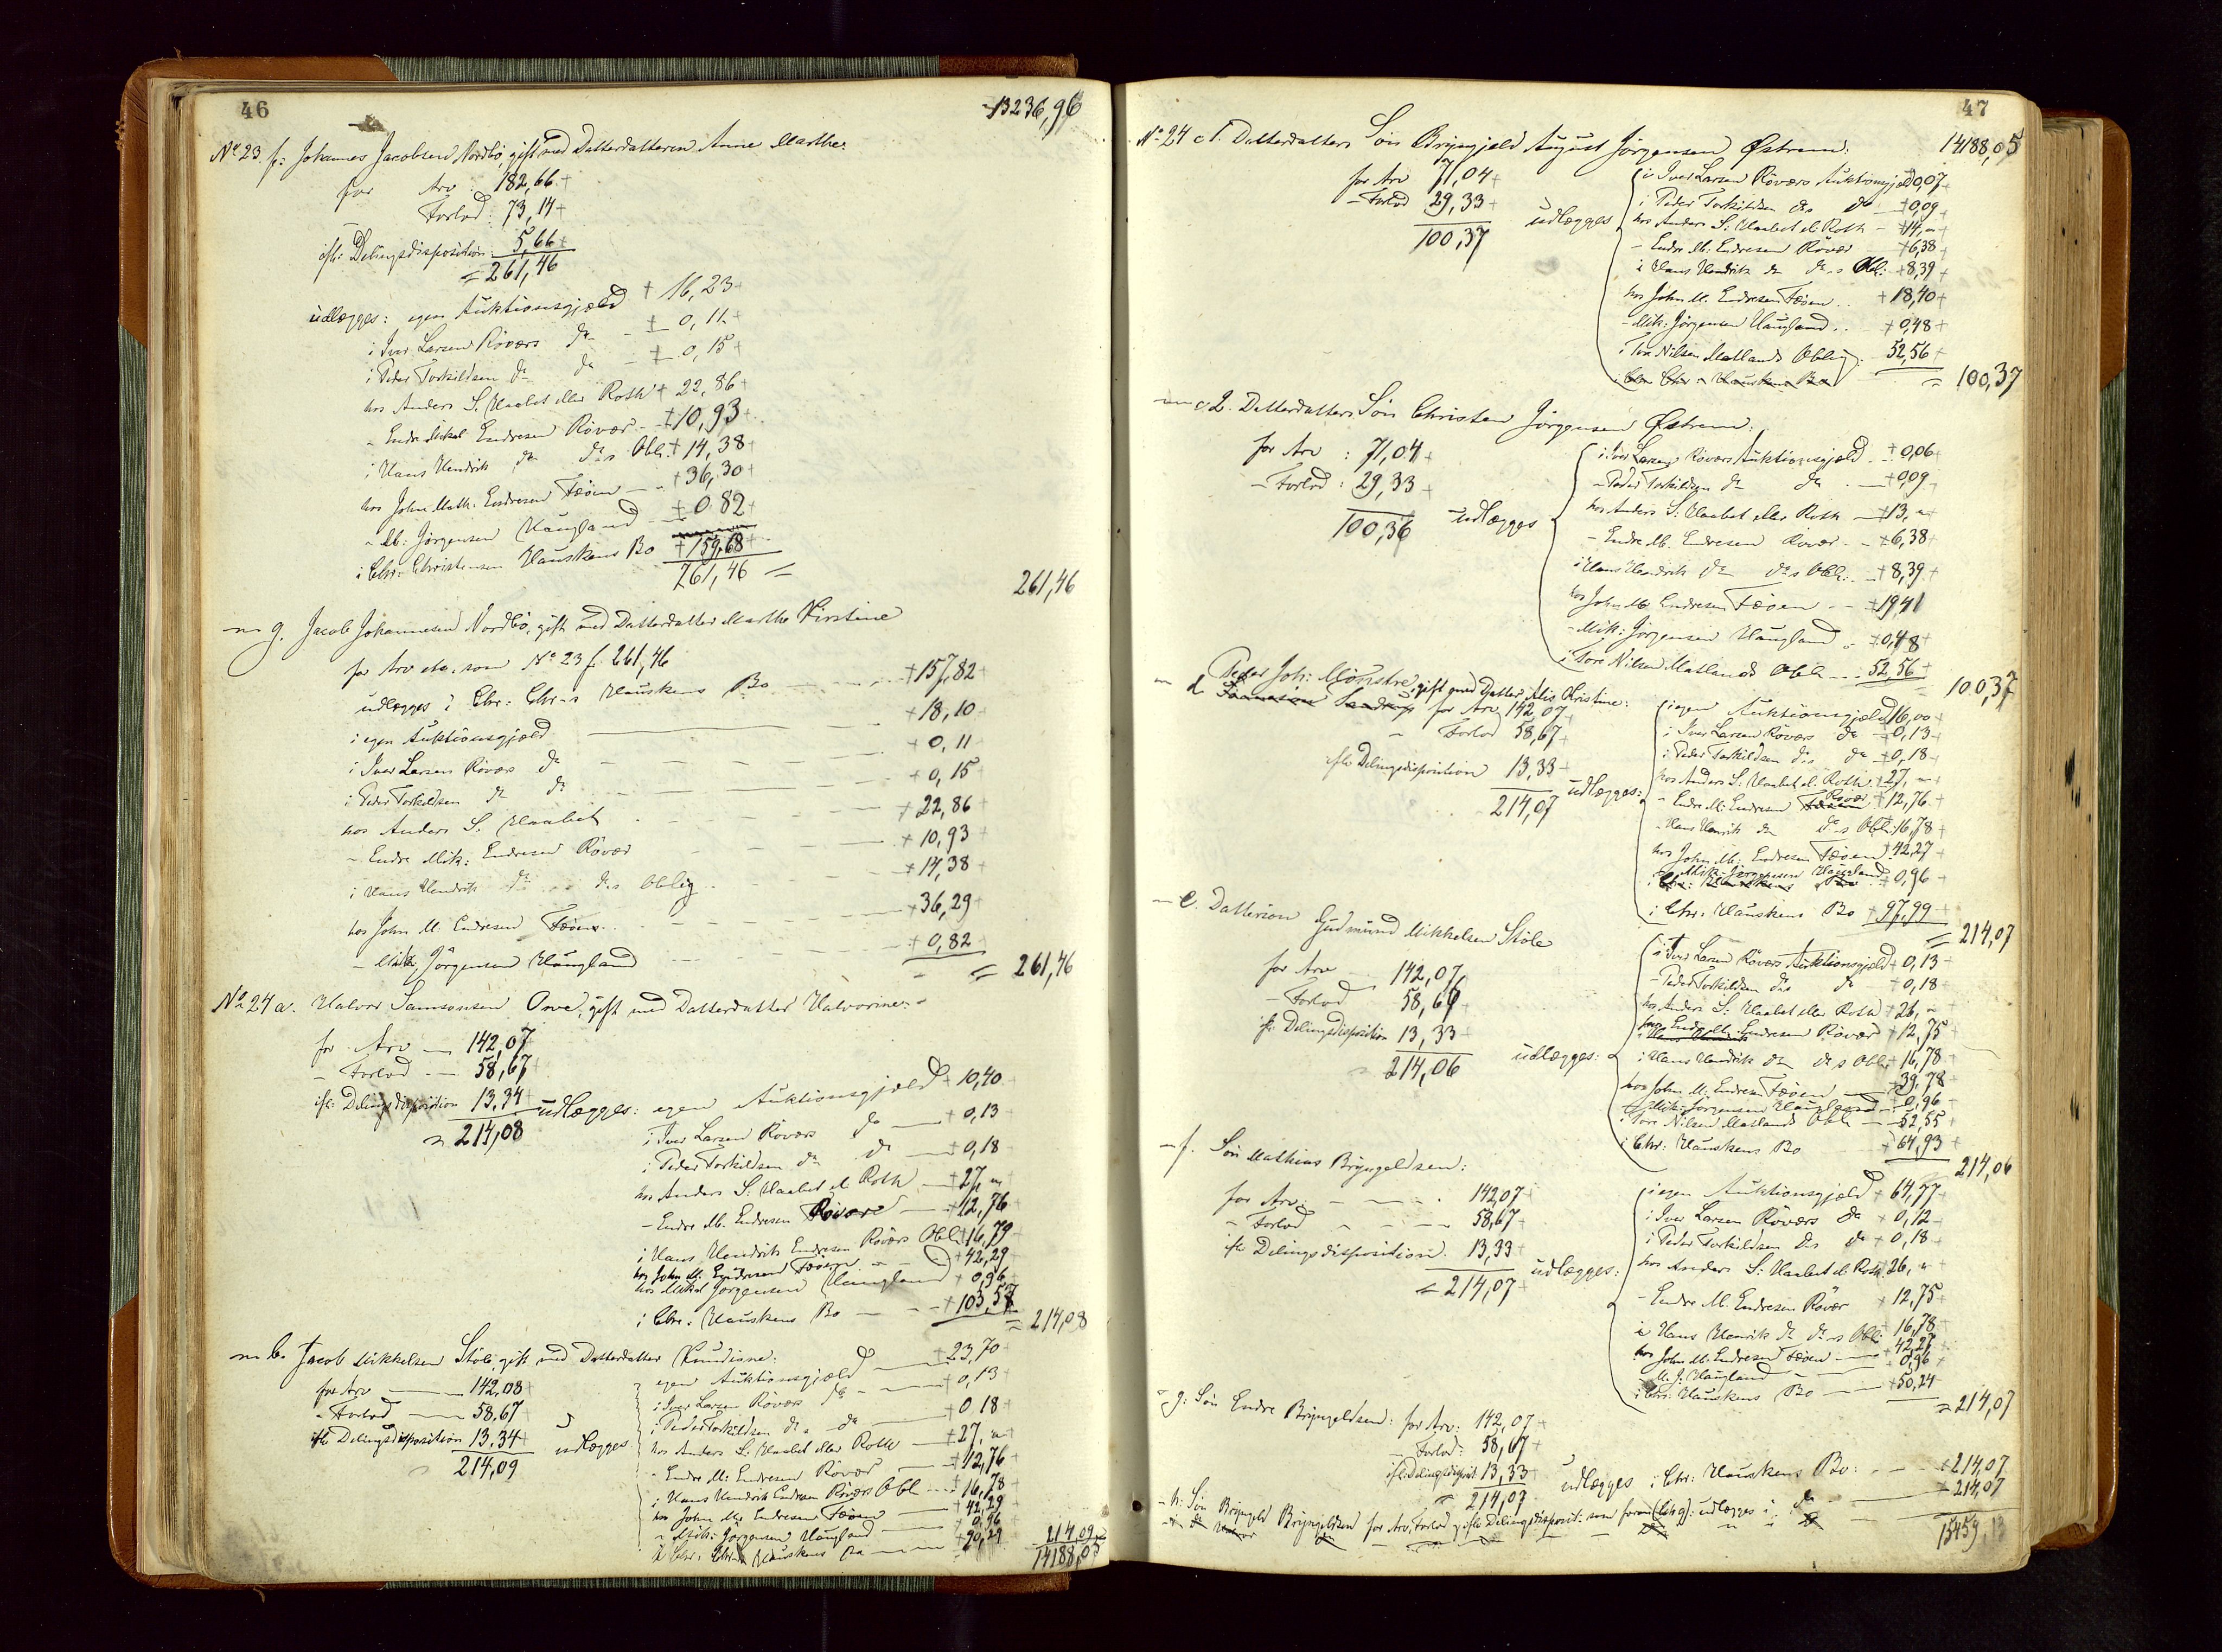 46
13236,96
No 23. f: Johannes Jacobsen Nordbö, gift med Datterdatteren Anne Marthe:
for Arv 182,66
Forlod: 73,14
ifl: Delingsdisposition: 5,66
= 261,46
udlægges: egen Auktionsgjæld 16,23
i Iver Larsen Röværs do 0,11
i Peder Torkildsen do do 0,15
hos Anders S. Haabet eller Roth 22,86
- Endre Mikal Endresen Rövær 10,93
i Hans Hendrik do do s Obl: 14,38
hos John Math: Endresen Fæöen 36,30
- M: Jörgensen Haugland 0,82
i Chr: Christensen Hauskens Bo 159,68
261,46 =
261,46
g. Jacob Johannesen Nordbö, gift med Datterdatter Marthe Kirstine
for Arv etc. som No 23 f. 261,46
udlægges i Chr: Chr-s Hauskens Bo 157,82
i egen Auktionsgjæld 18,10
i Iver Larsen Röværs do 0,11
i Peder Torkildsen do do 0,15
hos Anders S. Haabet 22,86
- Endre Mik: Endresen Rövær 10,93
i Hans Hendrik do do s Oblig 14,38
hos John M. Endresen Fæöen 36,29
- Mik. Jörgensen Haugland 0,82
= 261,46
No 24 a. Halvor Samsonsen Orve, gift med Datterdatter Halvorine:
for Arv 142,07
- Forlod 58,67
ifl: Delingsdisposition 13,34
214,08
udlægges: egen Auktionsgjæld 10,40
i Iver Larsen Röværs do 0,13
i Peder Torkildsen do do 0,18
hos Anders S. Haabet el. Roth 27,
- Endre M. Endresen Rövær 12,76
i Hans Hendrik Endresen Röværs Obl: 16,79
hos John M. Endresen Fæöen 42,29
hos Mikal Jörgensen Haugland 0,96
i Chr. Hauskens Bo 103,57
= 214,08
b. Jacob Mikkelsen Stöle, gift med Datterdatter Knudine:
for Arv 142,08
- Forlod 58,67
ifl: Delingsdisposition 13,34
214,09
udlægges
egen Auktionsgjæld 23,70
i Iver Larsen Röværs do 0,13
i Peder Torkildsen do s do 0,18
hos Anders S. Haabet eller Roth 27,
- Endre M: Endresen Rövær 12,76
i Hans Hendrik Endresen Röværs Obl 16,78
hos John M: Endresen Fæöen 42,29
- Mik: Jörgensen Haugland 0,96
i Chr: Hauskens Bo 90,29
214,09
14188,05
47
14188,05
No 24 c 1. Datterdatters Sön Brynjeld August Jörgensen Östrem:
for Arv 71,04
- Forlod 29,33
100,37
udlægges
i Iver Larsen Röværs Auktionsgjæld 0,07
i Peder Torkildsen do s do 0,09
hos Anders S. Haabet el. Roth 14,
- Endre M. Endresen Rövær 6,38
i Hans Hendrik do do s Obl: 8,39
hos John M. Endresen Fæöen 18,40
- Mik: Jörgensen Haugland 0,48
i Tore Nilsen Matlands Oblig. 52,56
i Chr: Chr: Hauskens Bo
= 100,37
c 2. Datterdatters Sön Christen Jörgensen Östrem:
for Arv: 71,04
- Forlod: 29,33
100,36
udlægges
i Iver Larsens Röværs Auktionsgjæld 0,06
- Peder Torkildsen do do 0,09
hos Anders S: Haabet eller Roth 13,
- Endre M. Endresen Rövær 6,38
i Hans Hendrik do do s Obl: 8,39
hos John M. Endresen Fæöen 19,41
- Mik: Jörgensen Haugland 0,48
i Tore Nilsen Matlands Obl 52,56
100,37
d. Peder Joh: Mönstre, gift med Datter Alis Christine:
for Arv 142,07
- Forlod 58,67
ifl: Delingsdisposition 13,33
214,07
udlægges:
i egen Auktionsgjæld 16,00
i Iver Larsen Röværs do 0,13
i Peder Torkildsen do s do 0,18
hos Anders S. Haabet el. Roth 27,
- Endre M: Endresen Rövær 12,76
- Hans Henrik do do s Obl: 16,78
hos John M: Endresen Fæöen 42,27
- Mik: Jörgensen Haugland 0,96
i Chr: Hauskens Bo 97,99
= 214,07
e. Dattersön Gudmund Mikkelsen Stöle
for Arv 142,07
- Forlod 58,66
ifl: Delingsdisposition 13,33
214,06
udlægges:
i Iver Larsen Röværs Auktionsgjæld 0,13
- Peder Torkildsen do s do 0,18
hos Anders S: Haabet eller Roth 26,
hos Endre M. Endresen Rövær 12,75
i Hans Hendrik do do s Obl: 16,78
hos John M. Endresen Fæöen 39,78
- Mik: Jörgensen Haugland 0,96
i Tore Nilsen Matlands Obl 52,55
i Chr: Hauskens Bo 64,93
214,06
f. Sön Mathias Bryngeldsen:
for Arv: 142,07
- Forlod 58,67
ifl: Delingsdisposition. 13,33
= 214,07
udlægges:
i egen Auktionsgjæld 64,77
i Iver Larsen Röværs do 0,12
i Peder Torkildsen do s do 0,18
hos Anders S: Haabet el. Roth 26,
- Endre M. Endresen Rövær 12,75
i Hans Henrik do do s Obl: 16,78
hos John M. Endresen Fæöen 42,27
- M. J. Haugland 0,96
i Chr: Hauskens Bo 50,24
= 214,07
g: Sön Endre Bryngeldsen: for Arv: 142,07
- Forlod: 58,67
ifl: Delingsdisposit 13,33
= 214,07
udlægges i Chr: Hauskens Bo: 214,07
h: Sön Bryngeld Bryngeldsen for Arv, Forlod & ifl: Delingsdisposit: som foran (Litr g): udlægges i do 214,07
15459,13